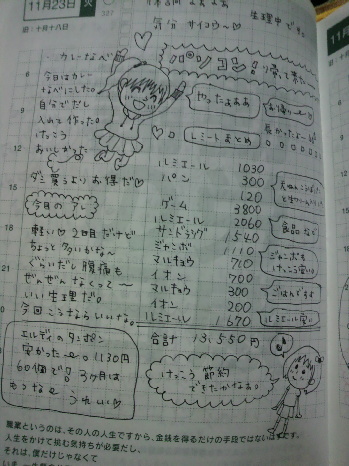 11月23日 火
327
旧・十月十八日
体調 よよよ
気分 サイコウ〜♡
生理中です。
パソコン!
帰って来た〜
カレーなべ
今日はカレー
なべにした。
自分でだし
入れて作った。
けっこう
おいしかった
ダシ買うよりお得だ♡
やったよぉぉぉ
お帰り〜♡
長かったよー
レシートまとめ
ルミエール 1030
パン 300
120
ゲーム 3800
ルミエール 2060
サンドラッグ 1540
ジャンボ 1110
マルキョウ 710
イオン 700
マルキョウ 300
イオン 200
ルミエール 1670
合計 13,550円
食品など
ジャンボも
けっこう安い。
ごはんです
ルミエール安い。
今日の
軽い♡2日目だけど
ちょっと多いかな〜
ぐらいだし腹痛も
ぜんぜんなくって〜
いい生理だ。
今回こうならいいな。
エルディのタンポン
安かった〜の1130円
60個で!3ヶ月は
もつな〜 うれしい♡
けっこう節約
できたかなぁ。
職業というのは、その人の人生ですから、金銭を得るだけの手段ではない
人生をかけて挑む気持が必要だし、
それは、僕だけじゃなくて